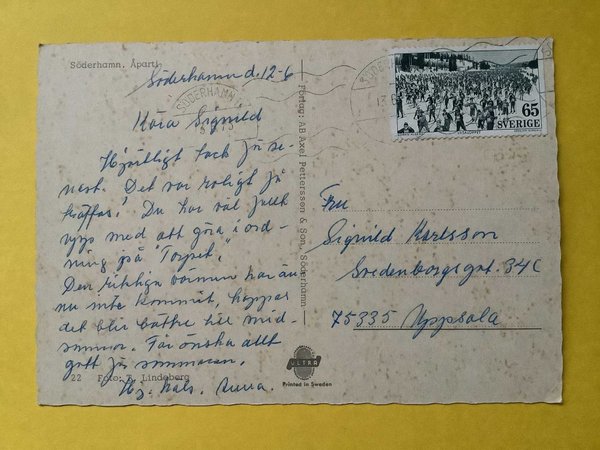 Söderhamn. Åparti
Söderhamn d. 12-6
SÖDERHAMN
Kära Signild
Hjärtligt tack för se-
nast. Det var roligt få
träffas! Du har väl fullt
upp med att göra i ord-
ning på "Torpet".
Den riktiga värmen har än-
nu inte kommit, hoppas
det blir bättre till mid-
sommar. Får önska allt
gott för sommaren.
Hj. häls. Anna.
22 Foto: Lindeberg
Förlag: AB Axel Pettersson & Son, Söderhamn
ULTRA
Printed in Sweden
65
SVERIGE
Fru
Signild Karlsson
Svedenborgsgat. 34C
75335 Uppsala